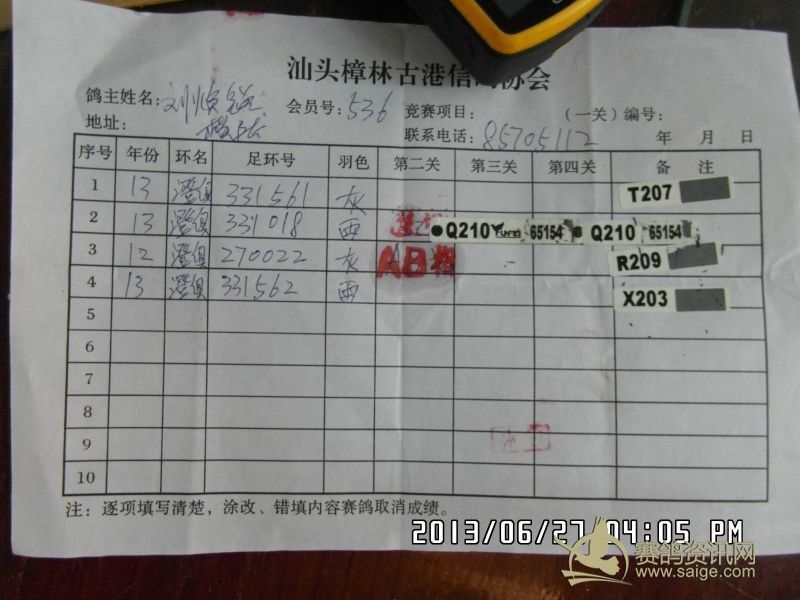 汕头樟林古港信鸽协会
鸽主姓名： 会员号：536 竞赛项目： （一关）编号：
地址： 联系电话：85705112 年 月 日
序号 年份 环名 足环号 羽色 第二关 第三关 第四关 备 注
1 13 澄俱 331561 灰 T207
2 13 澄俱 331018 西 Q210 65154 Q210 65154
3 12 澄俱 270022 灰 AB R209
4 13 澄俱 331562 西 X203
5
6
7
8
9
10
注：逐项填写清楚，涂改、错填内容赛鸽取消成绩。
2013/06/27 04:05 PM
赛鸽资讯网
www.saige.com